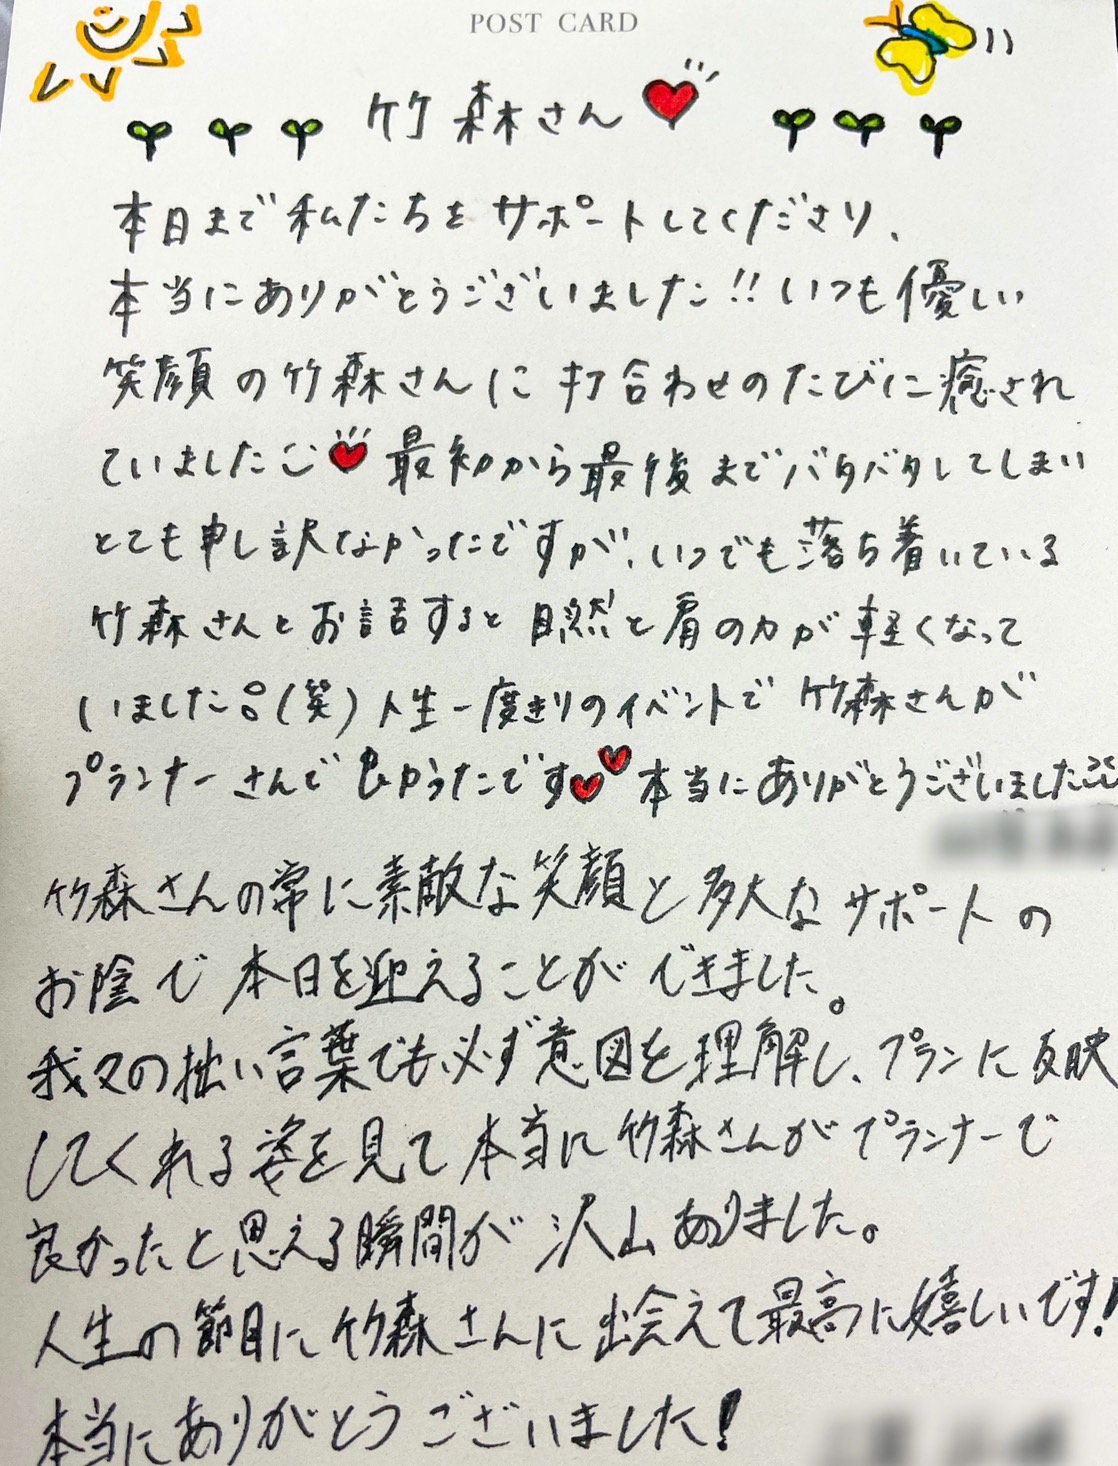 POST CARD
竹森さん
本日まで私たちをサポートしてくださり、
本当にありがとうございました!!いつも優しい
笑顔の竹森さんに打合わせのたびに癒され
ていました 最初から最後までバタバタしてしまい
とても申し訳なかったですが、いつでも落ち着いている
竹森さんとお話すると自然と肩の力が軽くなって
いました。(笑)人生一度きりのイベントで竹森さんが
プランナーさんで良かったです 本当にありがとうございました
竹森さんの常に素敵な笑顔と多大なサポートの
お陰で本日を迎えることができました。
我々の拙い言葉でも必ず意図を理解し、プランに反映
してくれる姿を見て本当に竹森さんがプランナーで
良かったと思える瞬間が沢山ありました。
人生の節目に竹森さんに出会えて最高に嬉しいです!
本当にありがとうございました!